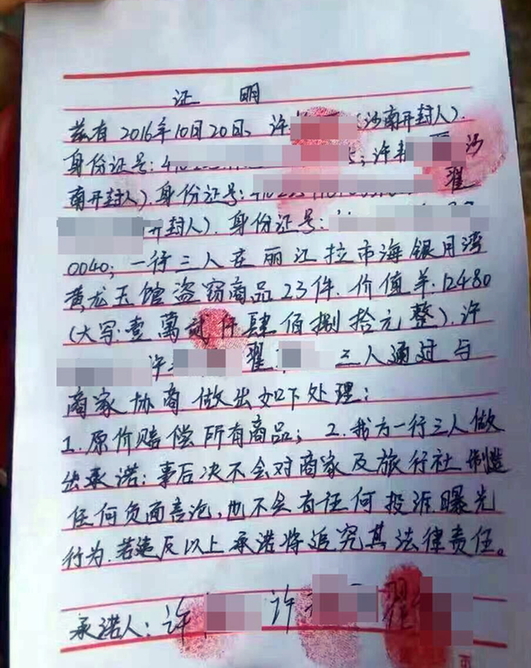 证 明
兹有2016年10月20日、许 (河南开封人).
身份证号: 许 河
南开封人).身份证号: 翟
开封人).身份证号:
0040;一行三人在丽江拉市海银月湾
黄龙玉馆盗窃商品23件.价值¥:12480
(大写:壹萬贰仟肆佰捌拾元整).许
许 翟 三人通过与
商家协商做出如下处理:
1.原价赔偿所有商品;2.我方一行三人做
出承诺:事后决不会对商家及旅行社制造
任何负面言论,也不会有任何投诉曝光
行为.若违反以上承诺将追究其法律责任。
承诺人:许 许 翟